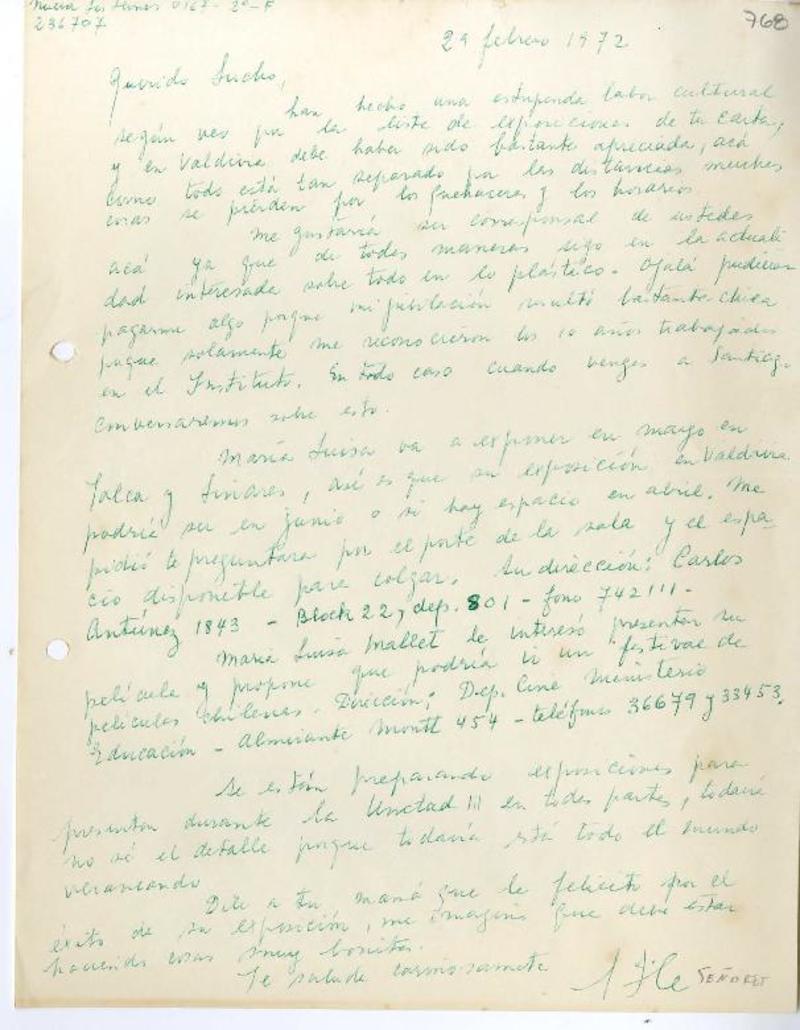 Nueva Los Leones 0167 - 2º - F
236707
768
29 febrero 1972
Querido Lucho,
han hecho una estupenda labor cultural
según veo por la lista de exposiciones de tu carta,
y en Valdivia debe haber sido bastante apreciada, acá
como todo está tan separado por las distancias muchas
cosas se pierden por los quehaceres y los horarios
Me gustaría ser corresponsal de ustedes
acá ya que de todas maneras sigo en la actuali
dad interesada sobre todo en lo plástico. Ojalá pudieran
pagarme algo porque mi jubilación resultó bastante chica
porque solamente me reconocieron los 10 años trabajados
en el Instituto. En todo caso cuando vengas a Santiago
conversaremos sobre esto.
María Luisa va a exponer en mayo en
Talca y Linares, así es que su exposición en Valdivia
podría ser en junio o si hay espacio en abril. Me
pidió te preguntara por el porte de la sala y el espa-
cio disponible para colgar. Su dirección: Carlos
Antúnez 1843 - Block 22, dep. 801 - fono 742111 -
María Luisa Mallet le interesó presentar su
película y propone que podría ir un festival de
películas chilenas. Dirección: Dep. Cine Ministerio
Educación - Almirante Montt 454 - teléfonos 36679 y 33453.
Se están preparando exposiciones para
presentar durante la Unctad III en todas partes, todavía
no sé el detalle porque todavía está todo el mundo
veraneando
Dile a tu mamá que le felicito por el
éxito de su exposición, me imagino que debe estar
haciendo cosas muy bonitas.
Te saluda cariñosamente
SEÑORET